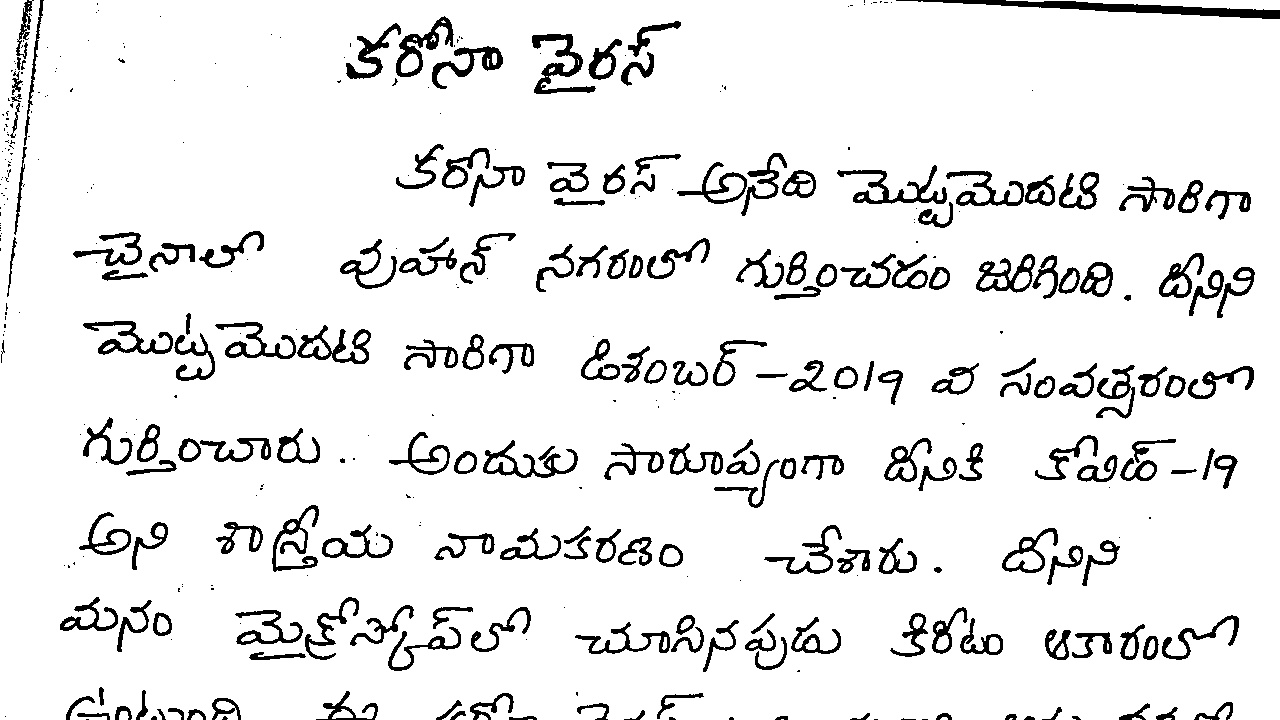 కరోనా వైరస్
కరోనా వైరస్ అనేది మొట్టమొదటి సారిగా
చైనాలో వుహాన్ నగరంలో గుర్తించడం జరిగింది. దీనిని
మొట్టమొదటి సారిగా డిశంబర్ -2019 వ సంవత్సరంలో
గుర్తించారు. అందుకు సారూప్యంగా దీనికి కోవిడ్ -19
అని శాస్త్రీయ నామకరణం చేశారు. దీనిని
మనం మైక్రోస్కోప్‌లో చూసినపుడు కిరీటం ఆకారంలో
ఉంటుంది ఈ కరోనా వైరస్